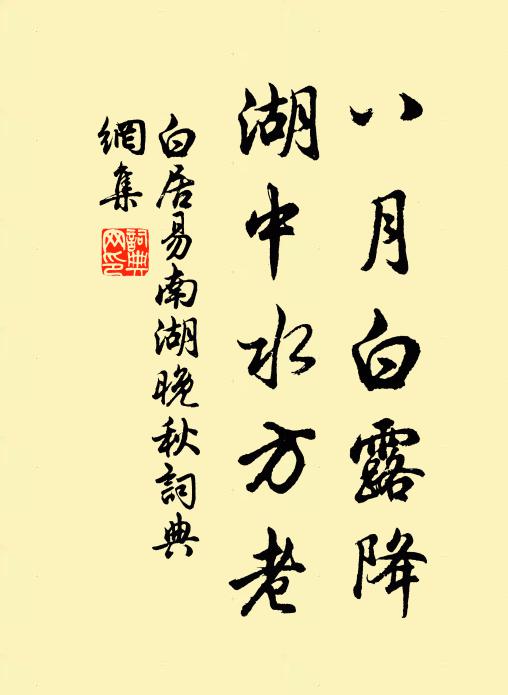 八月白露降
湖中水方老
白居易南湖晚秋詞典
網集
詞典网印